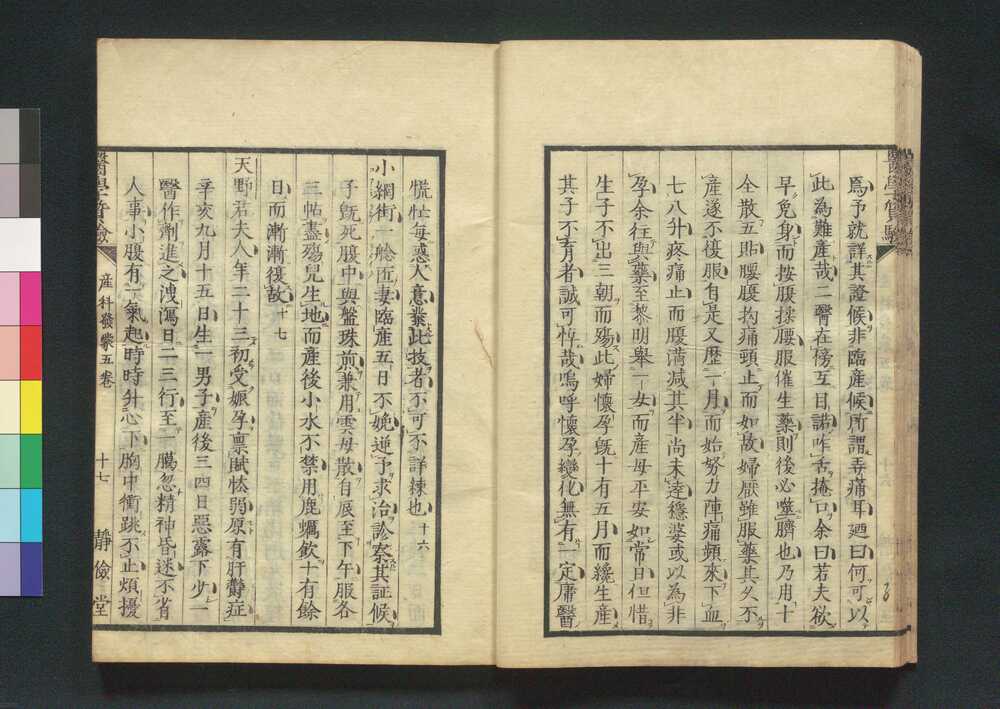 爲予就詳其證候非臨産候所謂弄痛耳廼曰何可以
此為難産哉二醫在傍互目諾咋舌掩口余曰若夫欲
早免身而按腹揉腰服催生藥則後必噬臍也乃用十
全散五貼腰腹拘痛頸止而如故婦厭雖服藥其久不
産遂不復服自是又歴一月而始努力陣痛頻來下血
七八升疼痛止而腹満減其半尚未達穏婆或以為非
孕余往與藥至黎明舉一女而産母平安如常日但惜
生子不出三朝而殤此婦懷孕既十有五月而纔生産
其子不育者誠可悼哉嗚呼懷孕變化無有一定庸醫
慌忙毎惑人意業此技者不可不詳練也十六
小綱街一舩匠妻臨産五日不娩逆予求治診察其証候
子既死腹中與盤珠煎兼用雲母散自辰至下午服各
三帖盡殤兒生地而産後小水不禁用鹿蠣飲十有餘
日而漸漸復故十七
天野君夫人年二十三初受娠孕禀賦怯弱原有肝鬱症
辛亥九月十五日生一男子産後三四日惡露下少一
醫作劑進之洩瀉日二三行至一臈忽精神昏迷不省
人事小腹有一氣起時時升心下胸中衝跳不止煩擾
醫學實驗
産科發蒙五卷
十七
靜儉堂